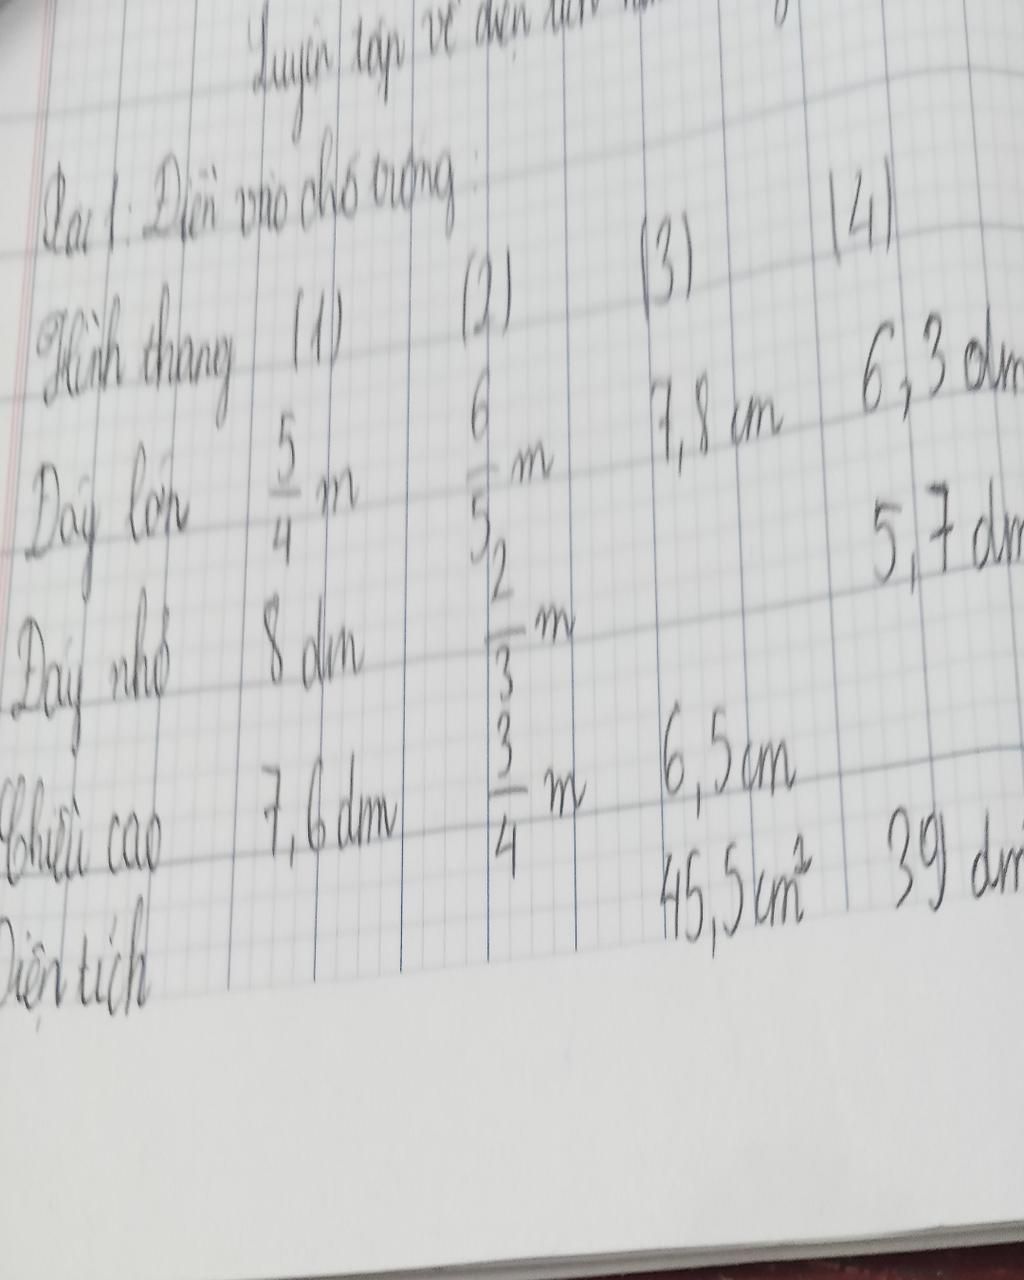 Luyện tập về diện tích
Bài 1: Điền vào chỗ trống:
Hình thang (1) (2) (3) (4)
Đáy lớn 5/4 m 6/5 m 7,8 cm 6,3 dm
Đáy nhỏ 8 dm 2/3 m 5,7 dm
Chiều cao 7,6 dm 3/4 m 6,5 cm
Diện tích 45,5 cm² 39 dm